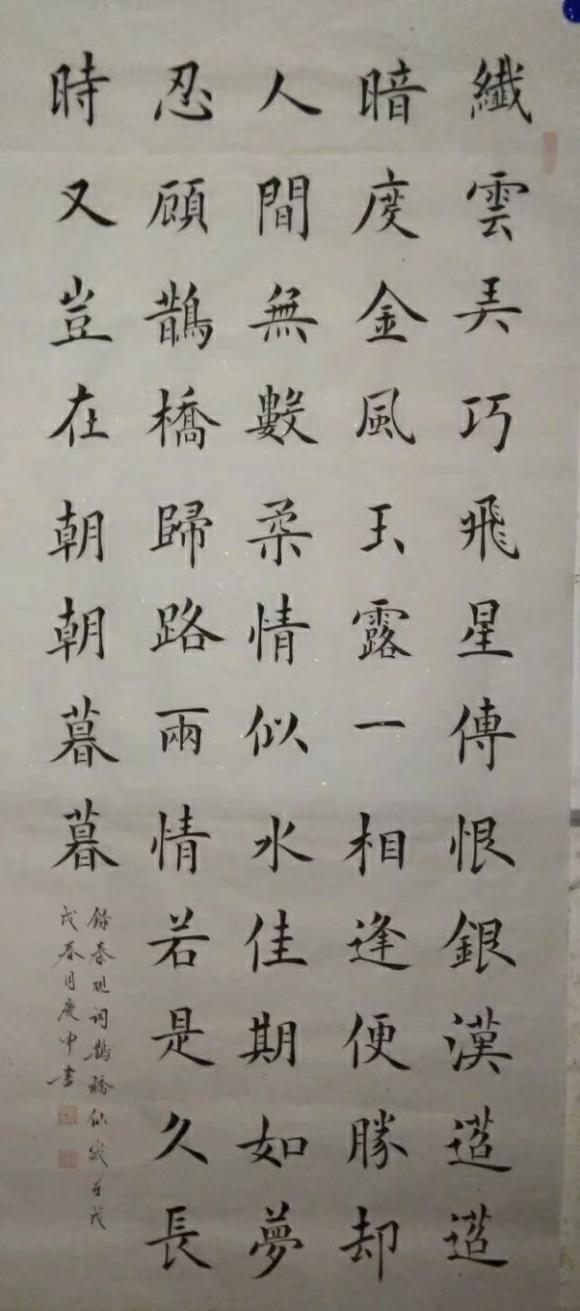 纖雲弄巧飛星傳恨銀漢迢迢
暗度金風玉露一相逢便勝却
人間無數柔情似水佳期如夢
忍顧鵲橋歸路兩情若是久長
時又豈在朝朝暮暮
錄秦观词鵲橋仙歲在戊
戌春月中書